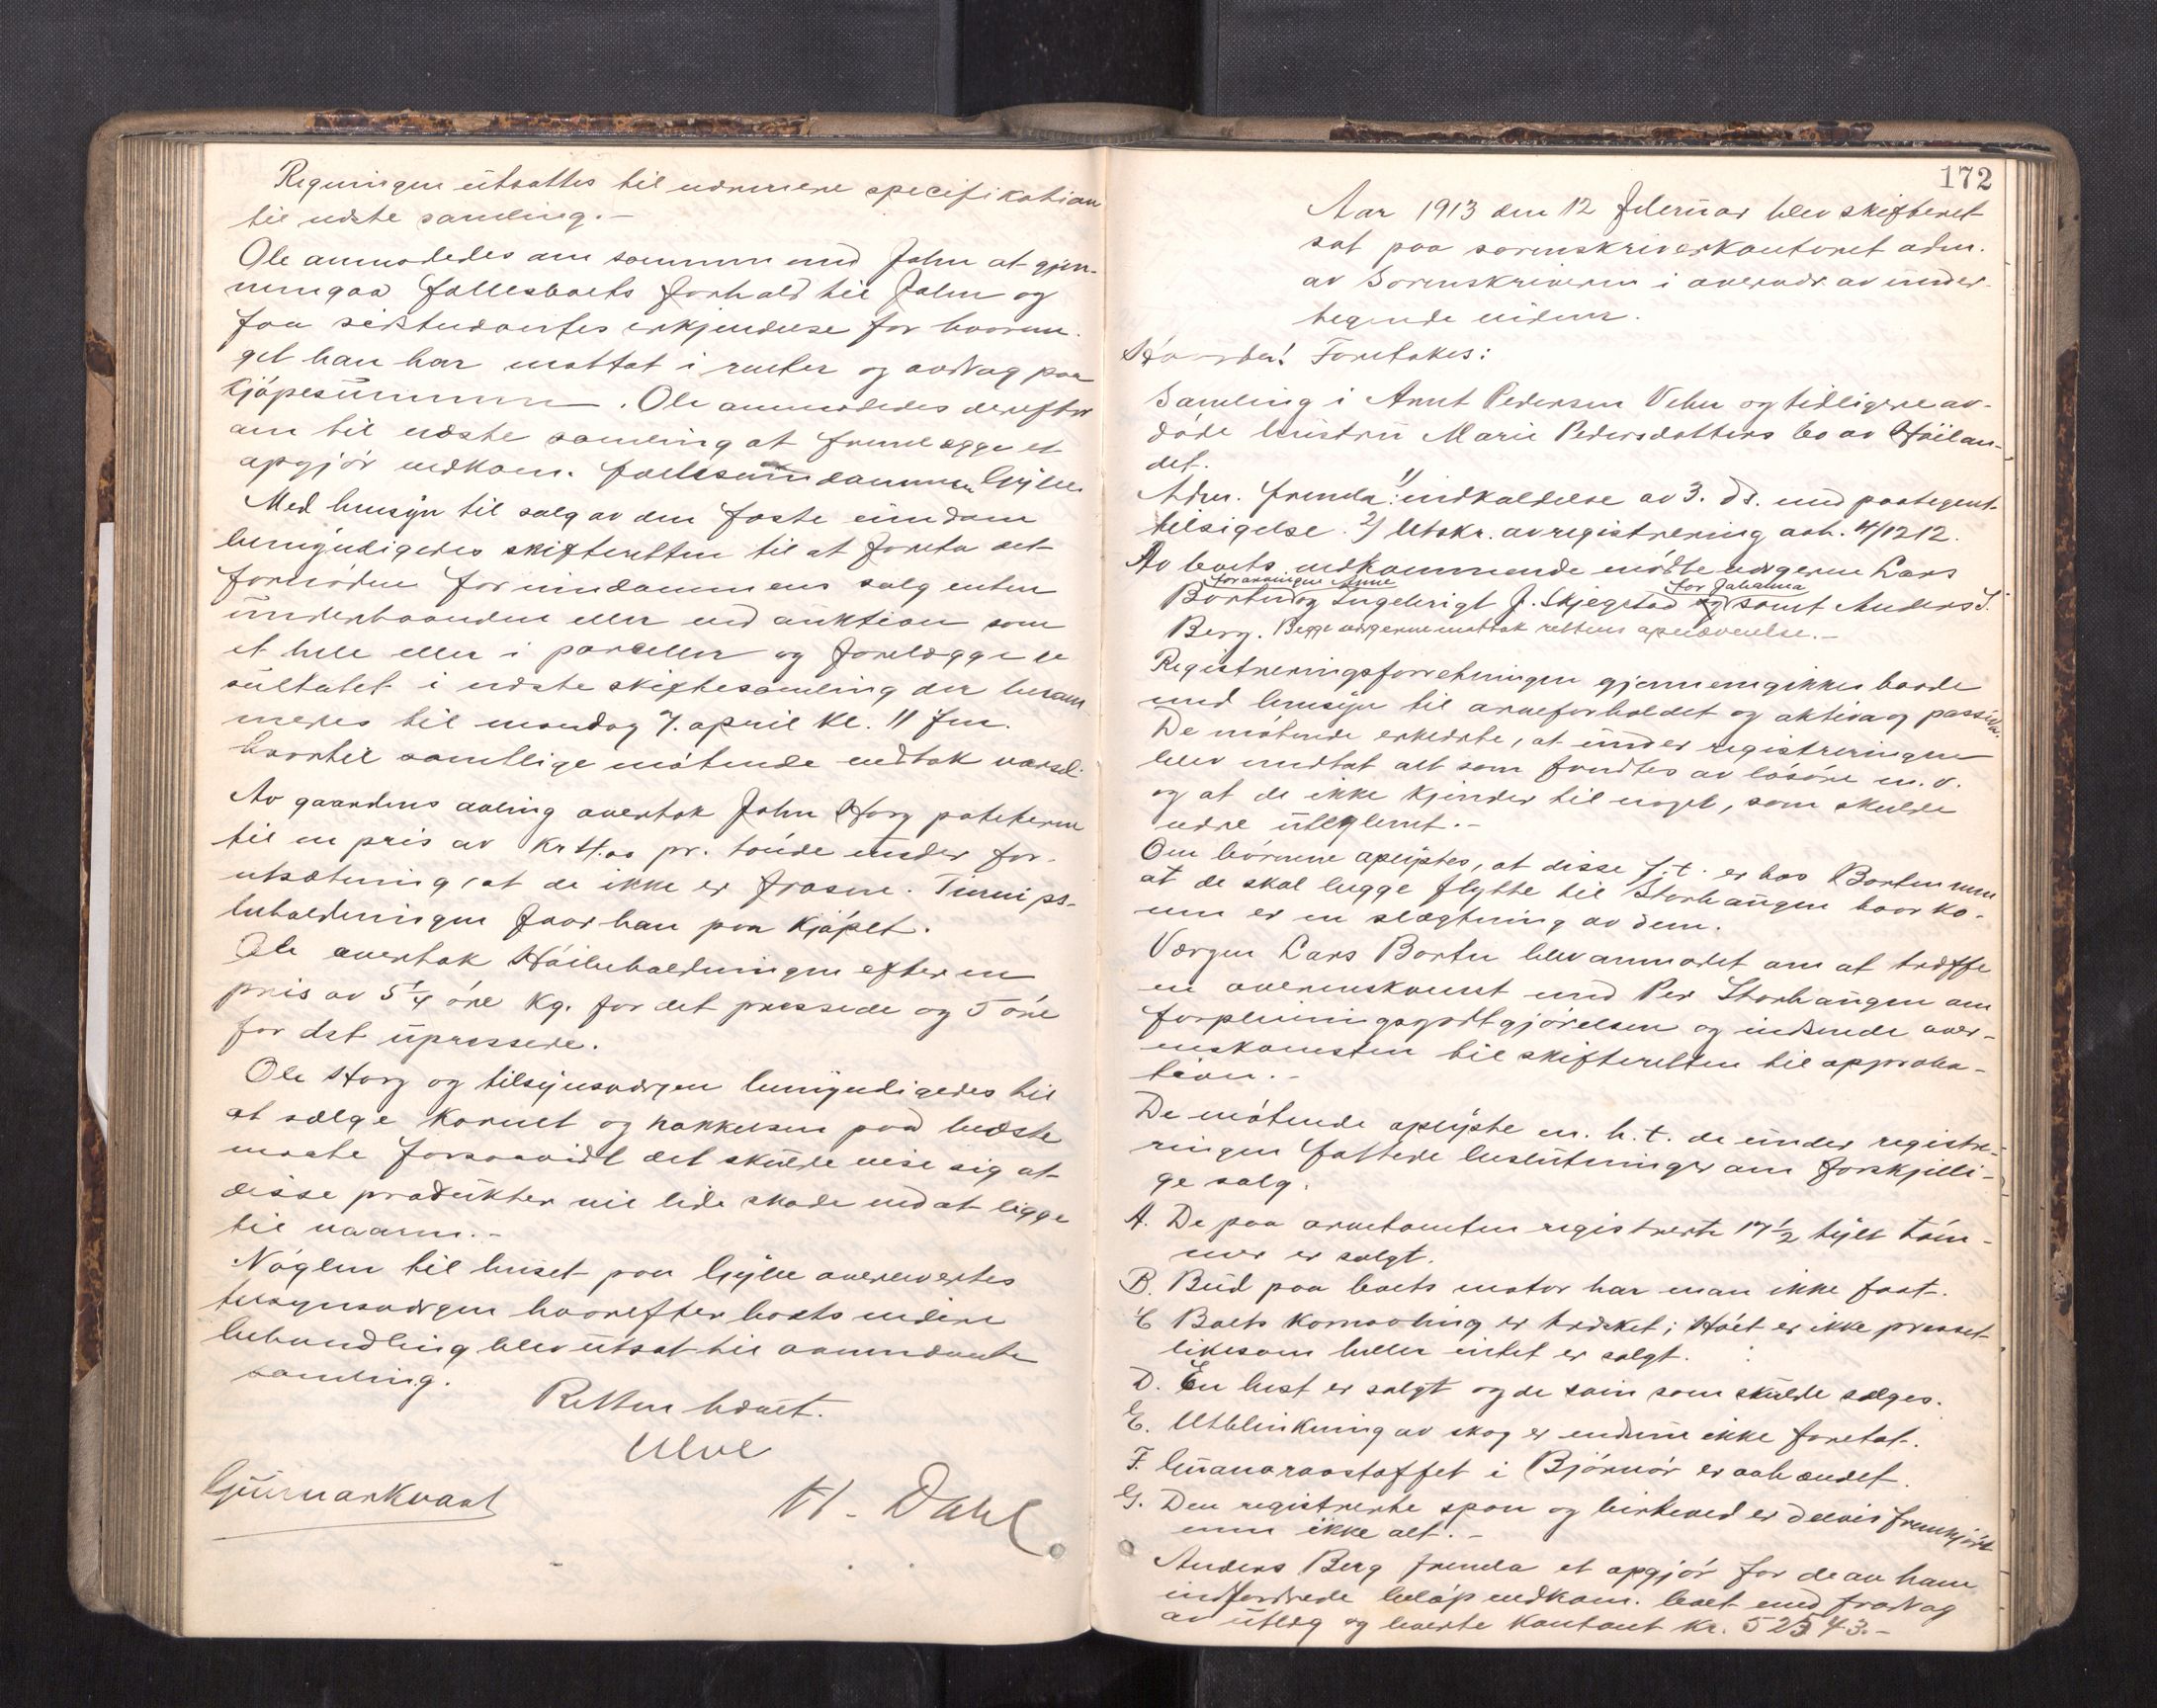 Regningen utsattes til nærmere specifikation
til næste samling.-
Ole anmodedes om sammen med John at gjen-
nemgaa fællesboets forhold til John og
faa sidstnævntes erkjendelse for hvorme-
get han har mottat i renter og avdrag paa
kjøpesummen. Ole anmodedes derefter
om til næste samling at fremlægge et
opgjør vedkom. fælleseiendommen Gylle.
Med hensyn til salg av den faste eiendom
bemyndigedes skifteretten til at foreta det
fornødne for eiendommens salg enten
underhaanden eller ved auktion som
et hele eller i parceller og forelægge re
sultatet i næste skiftesamling der beram
meres til mandag 7. april kl. 11 fm.
hvortil samtlige møtende vedtok varsel.
Av gaardens avling overtok John Horg poteterne
til en pris av kr 4.00 pr. tønde under for-
utsætning, at de ikke er frosne. Turnips-
beholdningen faar han paa kjøpet.
Ole overtok Høibeholdningen efter en
pris av 5 1/4 øre kg. for det pressede og 5 øre
for det upressede.
Ole Horg og tilsynsværgen bemyndigedes til
at sælge kornet og hakkelsen paa bedste
maate forsaavidt det skulde vise sig at
disse produkter vil lide skade ved at ligge
til vaaren.-
Nøglen til huset paa Gylle overlevertes
tilsynsværgen hvorefter boets videre
behandling blev utsat til ovennævnte
samling.
Retten hævet.
Ulve
Gunnar Kvaal
H. Dahl
172
Aar 1913 den 12 februar blev skifteret
sat paa sorenskriverkontoret adm.
av Sorenskriveren i overvær av under-
tegnede vidner.
Foretokes:
Samling i Arnt Pedersen Vehn og tidligere av-
døde hustru Marie Pedersdatters bo av Høilan-
det.
Adm. fremla: 1) indkaldelse av 3. ds. med paategnet
tilsigelse. 2) Utskr. av registrering avh. 4/12 12.
Av boets vedkommende møtte værgerne Lars
for arvingen Anne for Johanna
Borten og Ingebrigt J. Skjegstad og samt Anders J.
Berg. Begge værgerne mottok rettens opnævnelse.-
Registreringsforretningen gjennemgikkes baade
med hensyn til arveforholdet og aktiva og passiva.
De møtende erklærte, at under registreringen
blev medtat alt som fandtes av løsøre m. v.
og at de ikke kjender til noget, som skulde
være uteglemt.-
Om børnene oplystes, at disse f. t. er hos Borten men
at de skal begge flytte til Storhaugen hvor ko-
nen er en slægtning av dem.
Værgen Lars Borten blev anmodet om at træffe
en overenskomst med Per Storhaugen om
forpleiningsgodtgjørelsen og indsende over-
enskomsten til skifteretten til approba-
tion.-
De møtende oplyste m. h. t. de under registre-
ringen fattede beslutninger om forskjelli-
ge salg.
A. De paa arvetomten registrerte 17 1/2 tylt tøm-
mer er solgt.
B. Bud paa boets motor har man ikke faat.
C Boets kornavling er træsket; Høiet er ikke presset
likesom heller intet er solgt.
D. En hest er solgt og de svin som skulde sælges.
E. Utblinkning av skog er endnu ikke foretat.
F. Guanoraastoffet i Bjørnør er avhændet.
G. Den registrerte spon og birkeved er delvis fremkjørt
men ikke alt.-
Anders Berg fremla et opgjør for de av ham
indfordrede beløp vedkom. boet med fradrag
av utlæg og leverte kontant kr. 525 43.-